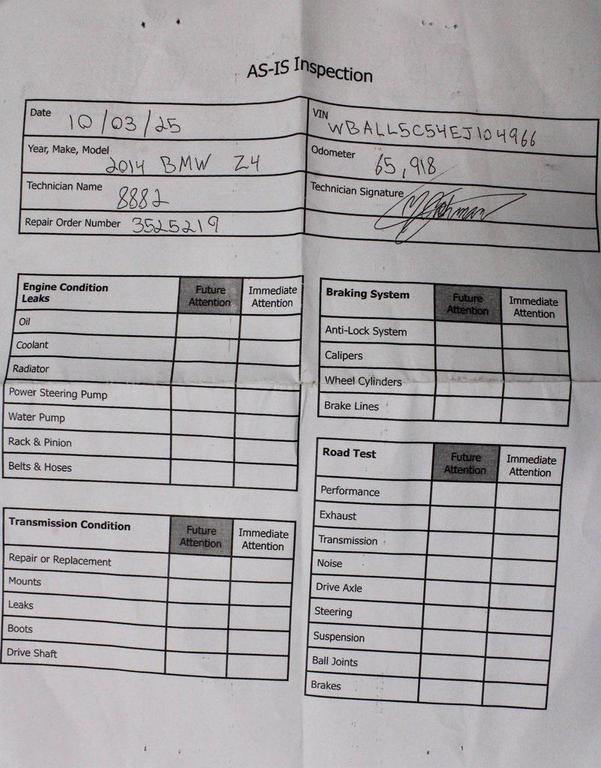 AS-IS Inspection
Date 10/03/25
VIN WBALL5C54EJ104966
Year, Make, Model 2014 BMW Z4
Odometer 65,918
Technician Name 8882
Technician Signature
Repair Order Number 3525219
Engine Condition
Leaks
Future Attention
Immediate Attention
Oil
Coolant
Radiator
Power Steering Pump
Water Pump
Rack & Pinion
Belts & Hoses
Transmission Condition
Future Attention
Immediate Attention
Repair or Replacement
Mounts
Leaks
Boots
Drive Shaft
Braking System
Future Attention
Immediate Attention
Anti-Lock System
Calipers
Wheel Cylinders
Brake Lines
Road Test
Future Attention
Immediate Attention
Performance
Exhaust
Transmission
Noise
Drive Axle
Steering
Suspension
Ball Joints
Brakes